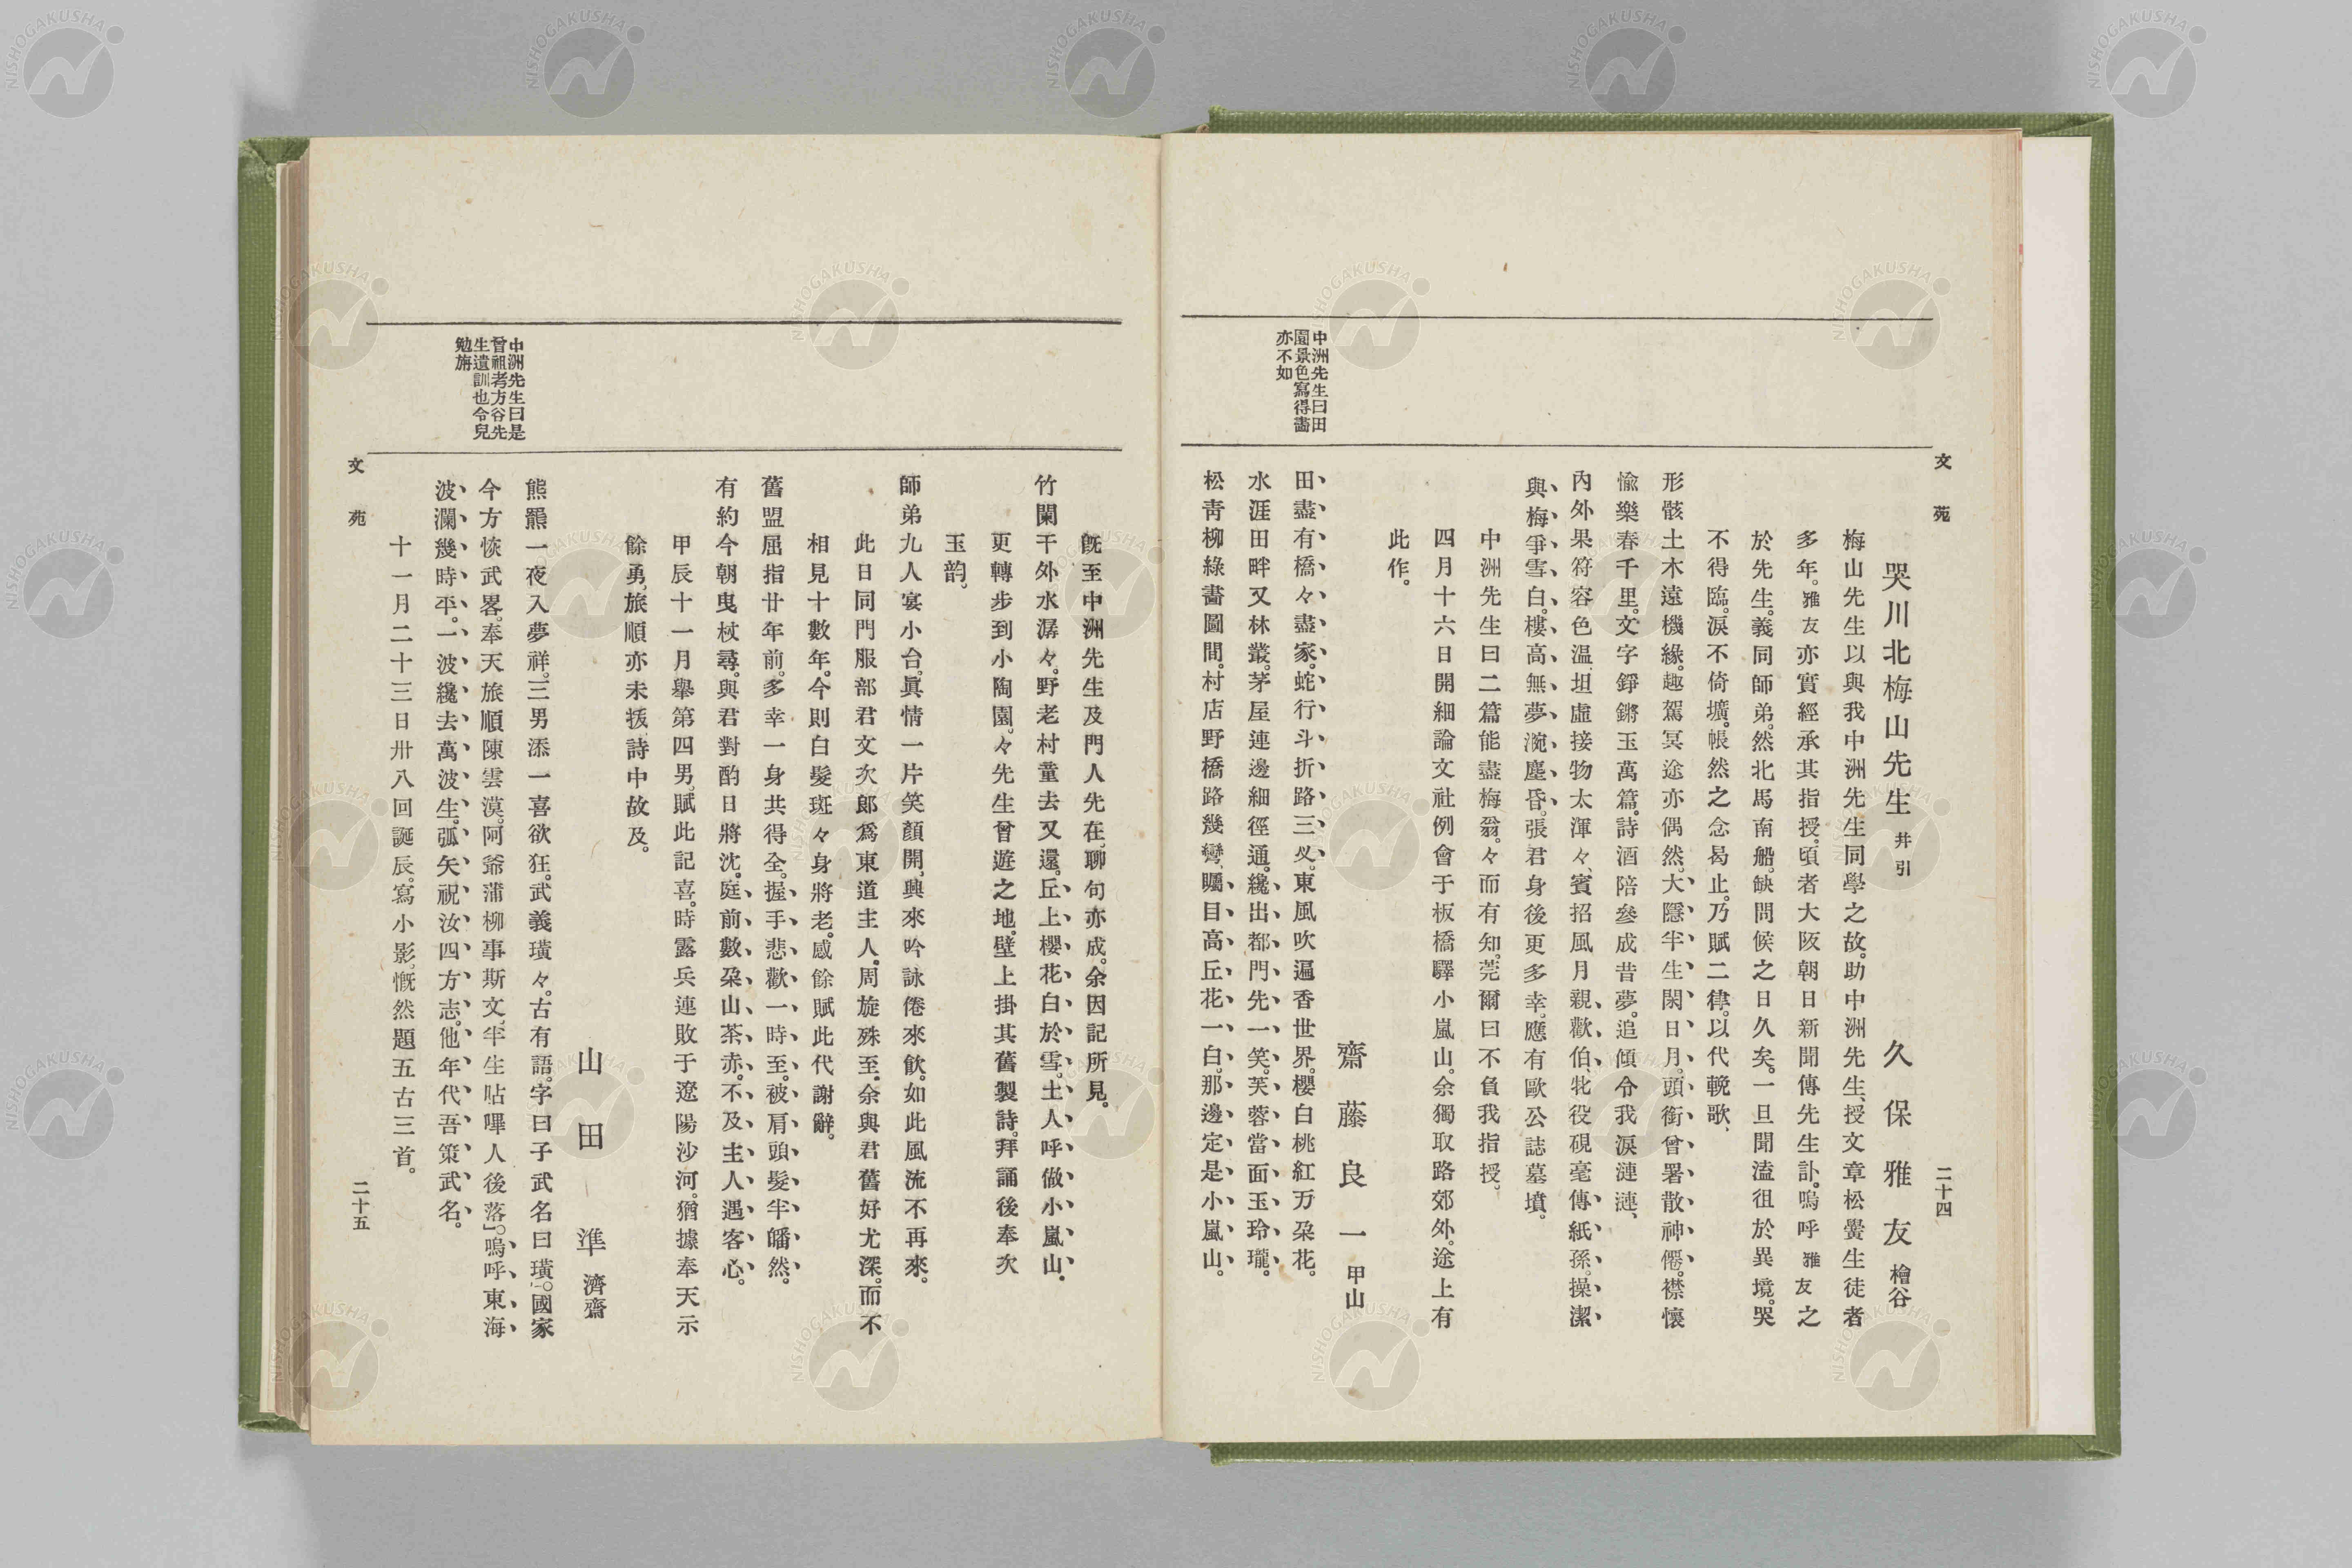 文苑
二十四
哭川北梅山先生 幷引
久保雅友 檜谷
梅山先生以與我中洲先生同學之故。助中洲先生、授文章松黌生徒者
多年。雅友亦實經承其指授。頃者大阪朝日新聞傳先生訃。嗚呼雅友之
於先生。義同師弟。然北馬南船。缺問候之日久矣。一旦聞溘徂於異境。哭
不得臨。淚不倚壙。悵然之念曷止。乃賦二律。以代輓歌、
形骸土木遠機緣。趣駕冥途亦偶然。大隱半生閑日月。頭銜曾署散神僊。襟懷
愉樂春千里。文字錚鏘玉萬篇。詩酒陪參成昔夢。追傾令我淚漣漣、
內外果符容色温、坦虛接物太渾々、賓招風月親、歡伯、牝役硯毫傳紙孫。操潔
與梅爭雪白。樓高無夢涴塵昏。張君身後更多幸。應有歐公誌墓墳。
中洲先生曰二篇能盡梅翁。々而有知。莞爾曰不負我指授。
四月十六日開細論文社例會于板橋驛小嵐山。余獨取路郊外。途上有
此作。
齋藤良一 甲山
中洲先生曰田
園景色寫得畵
亦不如
田盡有橋々盡家。蛇行斗折路三叉。東風吹遍香世界。櫻白桃紅万朶花。
水涯田畔又林叢。茅屋連邊細徑通。纔出都門先一笑。芙蓉當面玉玲瓏。
松靑柳綠畵圖間。村店野橋路幾彎、矚目高丘花一白。那邊定是小嵐山。
旣至中洲先生及門人先在、聊句亦成。余因記所見。
竹闌干外水潺々。野老村童去又還。丘上櫻花白於雪。土人呼做小嵐山。
更轉步到小陶園。々先生曾遊之地。壁上掛其舊製詩。拜誦後奉次
玉韵、
師弟九人宴小台。眞情一片笑顏開、興來吟詠倦來飮。如此風流不再來。
此日同門服部君文次郎爲東道主人。周旋殊至。余與君舊好尤深。而不
相見十數年。今則白髮斑々身將老。感餘賦此代謝辭。
舊盟屈指廿年前。多幸一身共得全。握手悲歡一時至。被肩頭髮半皤然。
有約今朝曳杖尋。與君對酌日將沈。庭前數朶山茶赤。不及主人遇客心。
甲辰十一月擧第四男。賦此記喜。時露兵連敗于遼陽沙河。猶據奉天示
餘勇、旅順亦未拔、詩中故及。
山田準 濟齋
中洲先生曰是
曾祖考方谷先
生遺訓也令兒
勉旃
熊羆一夜入夢祥。三男添一喜欲狂。武義璜々。古有語。字曰子武名曰璜。國家
今方恢武畧。奉天旅順陳雲漠。阿爺蒲柳事斯文、半生貼嗶人後落」。嗚呼東海
波瀾幾時平。一波纔去萬波生。弧矢祝汝四方志。他年代吾策武名。
十一月二十三日卅八回誕辰。寫小影。慨然題五古三首。
文苑
二十五